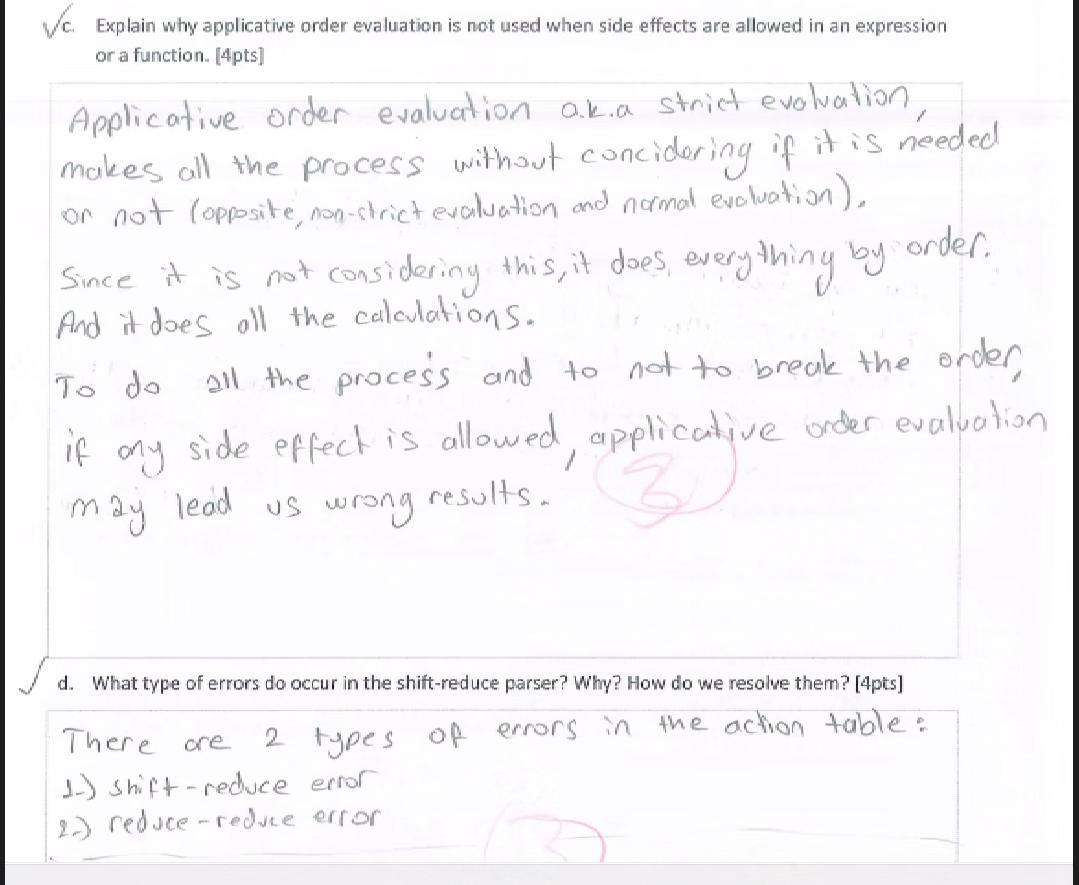 c. Explain why applicative order evaluation is not used when side effects are allowed in an expression
or a function. [4pts]
Applicative order evaluation a.k.a strict evolvation,
makes all the process without concidering if it is needed
or not (opposite, non-strict evaluation and normal evaluation).
Since it is not considering this, it does everything by order.
And it does all the calculations.
To do all the process and to not to break the order,
if any side effect is allowed, applicative order evaluation
may lead us wrong results.
3
d. What type of errors do occur in the shift-reduce parser? Why? How do we resolve them? [4pts]
There are 2 types of errors in the action table:
1-) shift-reduce error
2-) reduce-reduce error